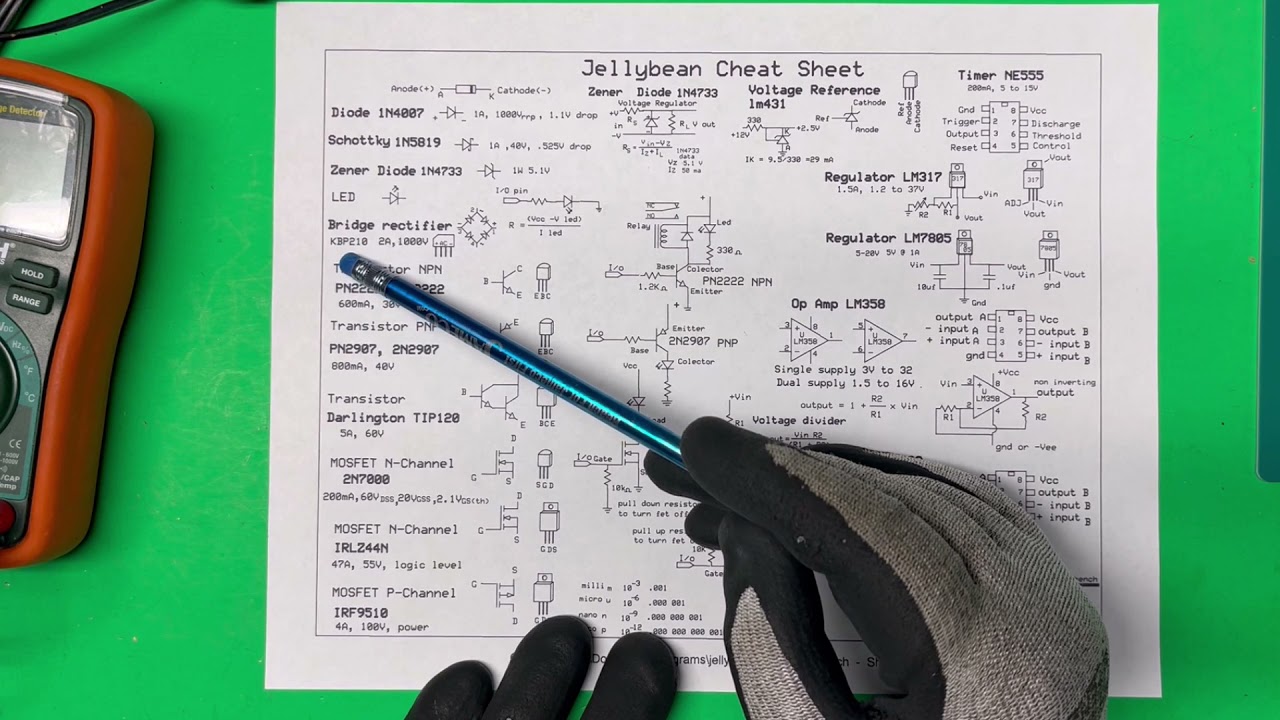 Jellybean Cheat Sheet
Anode(+) A K Cathode(-)
Diode 1N4007 , 1A, 1000Vrrp, 1.1V drop
Schottky 1N5819 1A ,40V, .525V drop
Zener Diode 1N4733 1W 5.1V
LED
I/O pin
R = (Vcc -V led)
I led
Bridge rectifier
KBP210 2A,1000V
NPN
600mA, 30V
B C E
EBC
Transistor PNP
PN2907, 2N2907
800mA, 40V
E
EBC
Transistor
Darlington TIP120
5A, 60V
B C E
BCE
MOSFET N-Channel
2N7000
200mA,60VDSS,20VGSS,2.1VGS(th)
D
G S
S G D
MOSFET N-Channel
IRLZ44N
47A, 55V, logic level
D
G S
GDS
MOSFET P-Channel
IRF9510
4A, 100V, power
S
G D
GDS
Zener Diode 1N4733
Voltage Regulator
+V in -V
Rs RL V out
Rs = Vin-Vz
Iz+IL
1N4733
data
Vz 5.1 V
Iz 50 ma
Voltage Reference
lm431
330
+12V
+2.5V
K
A
IK = 9.5/330 =29 mA
Cathode
Ref
Anode
Ref
Anode
Cathode
NC
NO
Relay
+
Led
330Ω
I/O
1.2KΩ
Base
Colector
PN2222 NPN
Emitter
+
I/O
Emitter
2N2907 PNP
Base
Colector
Vcc
I/O Gate
10kΩ
pull down resist
to turn fet of
pull up res
to turn fet
10K
I/o
Gate
milli m 10-3 .001
micro u 10-6 .000 001
nano n 10-9 .000 000 001
p 10-12 .000 000 000 001
Timer NE555
200mA, 5 to 15V
Gnd 1 8 Vcc
Trigger 2 7 Discharge
Output 3 6 Threshold
Reset 4 5 Control
Regulator LM317
1.5A, 1.2 to 37V
317
Vin
R2 R1
Vout
Vout
317
ADJ
Vin
Vout
Regulator LM7805
5-20V 5V @ 1A
Vin Vout
10uf .1uf
Gnd
7805
Vin Vout
gnd
Op Amp LM358
3 8 1 2 4
LM358
5 6 7
LM358
Single supply 3V to 32
Dual supply 1.5 to 16V
output = 1 + R2
R1 × Vin
output A 1 8 Vcc
- input A 2 7 output B
+ input A 3 6 - input B
gnd 4 5 + input B
+Vcc
Vin
LM358
non inverting
output
R1 R2
gnd or -Vee
+Vin
R1
Voltage divider
Vin R2
8 Vcc
7 output B
- input B
+ input B
HOLD
RANGE
CE